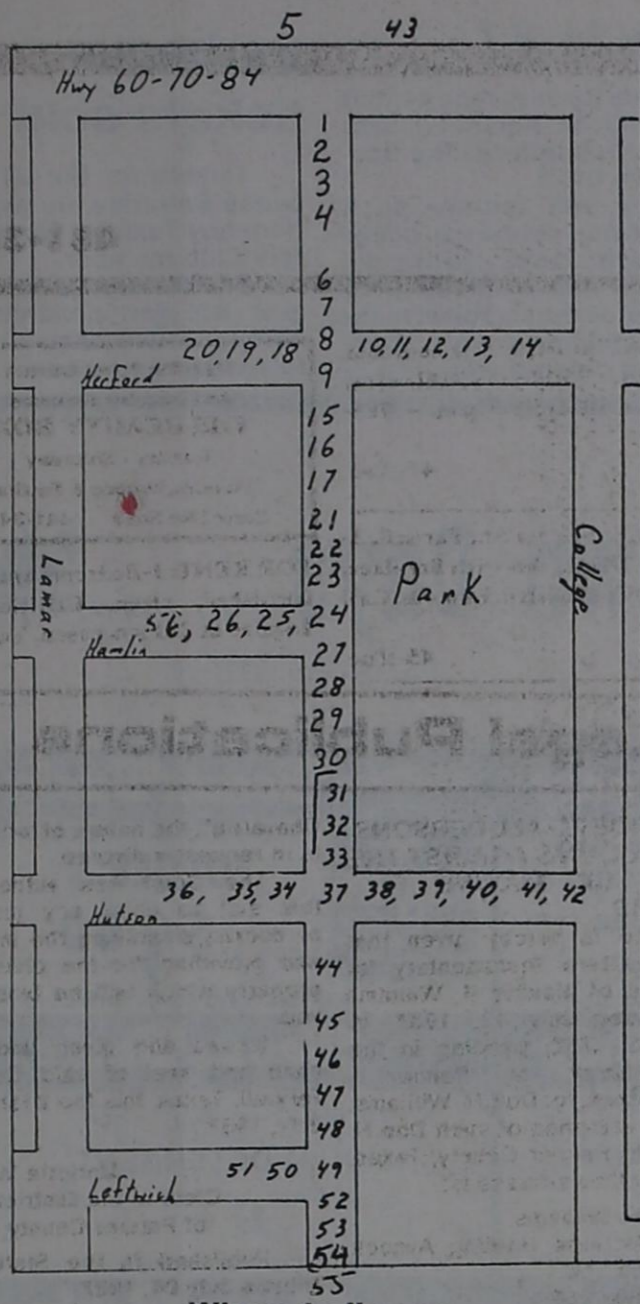 5 43
Hwy 60-70-84
1
2
3
4
6
7
20, 19, 18 8 10, 11, 12, 13, 14
9
Hereford
15
16
17
21
22
23
Park
College
Lamar
56, 26, 25, 24
Hamlin
27
28
29
30
31
32
33
36, 35, 34 37 38, 39, 40, 41, 42
Hutson
44
45
46
47
48
51 50 49
Leftwich
52
53
54
55